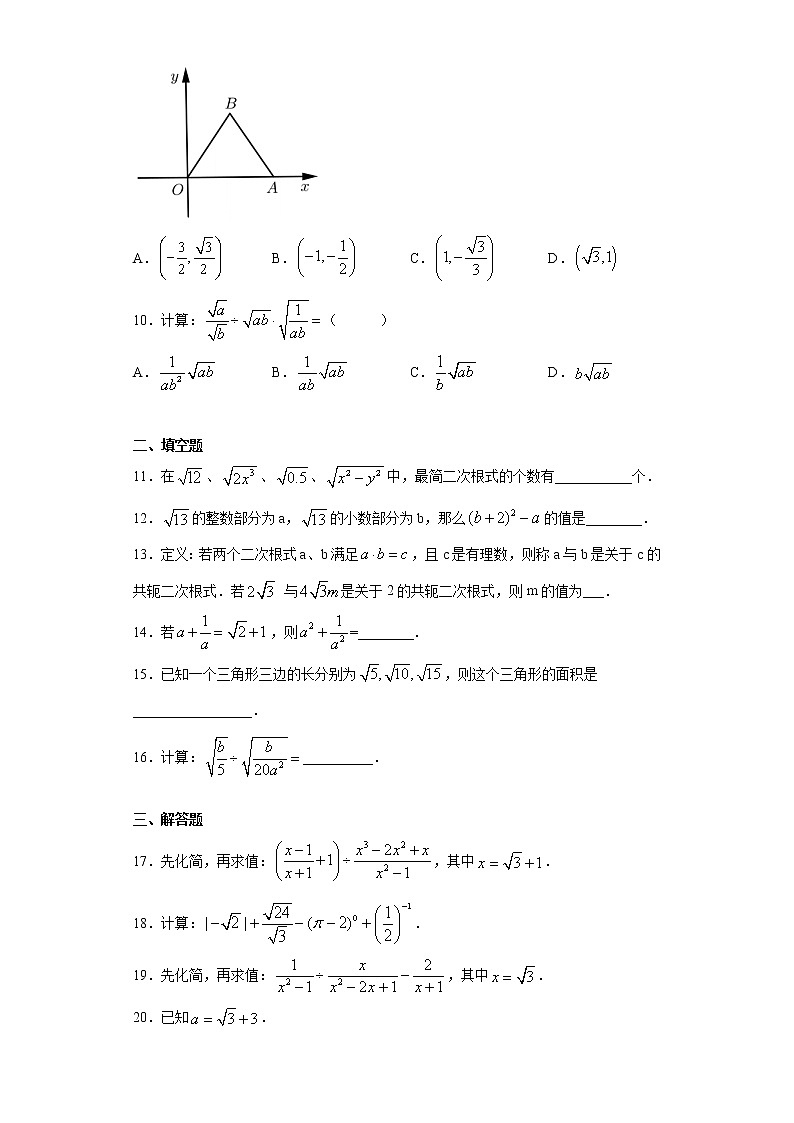 y
B
O A x
A．(-3/2, √3/2) B．(-1,-1/2) C．(1,-√3/3) D．(√3,1)
10．计算：√a/√b ÷ √ab · √(1/ab) =（ ）
A．1/(ab²) √ab B．1/(ab) √ab C．1/b √ab D．b√ab
二、填空题
11．在√12 、√(2x³) 、√0.5 、√(x²-y²) 中，最简二次根式的个数有___________个．
12．√13的整数部分为 a，√13的小数部分为 b，那么(b+2)²-a的值是________．
13．定义：若两个二次根式 a、b 满足a·b=c，且 c 是有理数，则称 a 与 b 是关于 c 的
共轭二次根式．若2√3 与4√3m是关于 2 的共轭二次根式，则 m 的值为___．
14．若a+1/a=√2+1，则a²+1/a²=________．
15．已知一个三角形三边的长分别为√5,√10,√15，则这个三角形的面积是
_________________．
16．计算：√(b/5) ÷ √(b/(20a²)) = __________．
三、解答题
17．先化简，再求值：((x-1)/(x+1)+1) ÷ (x³-2x²+x)/(x²-1)，其中x=√3+1．
18．计算：|-√2|+√24/√3-(π-2)⁰+(1/2)⁻¹．
19．先化简，再求值：1/(x²-1) ÷ x/(x²-2x+1) - 2/(x+1)，其中x=√3．
20．已知a=√3+3．